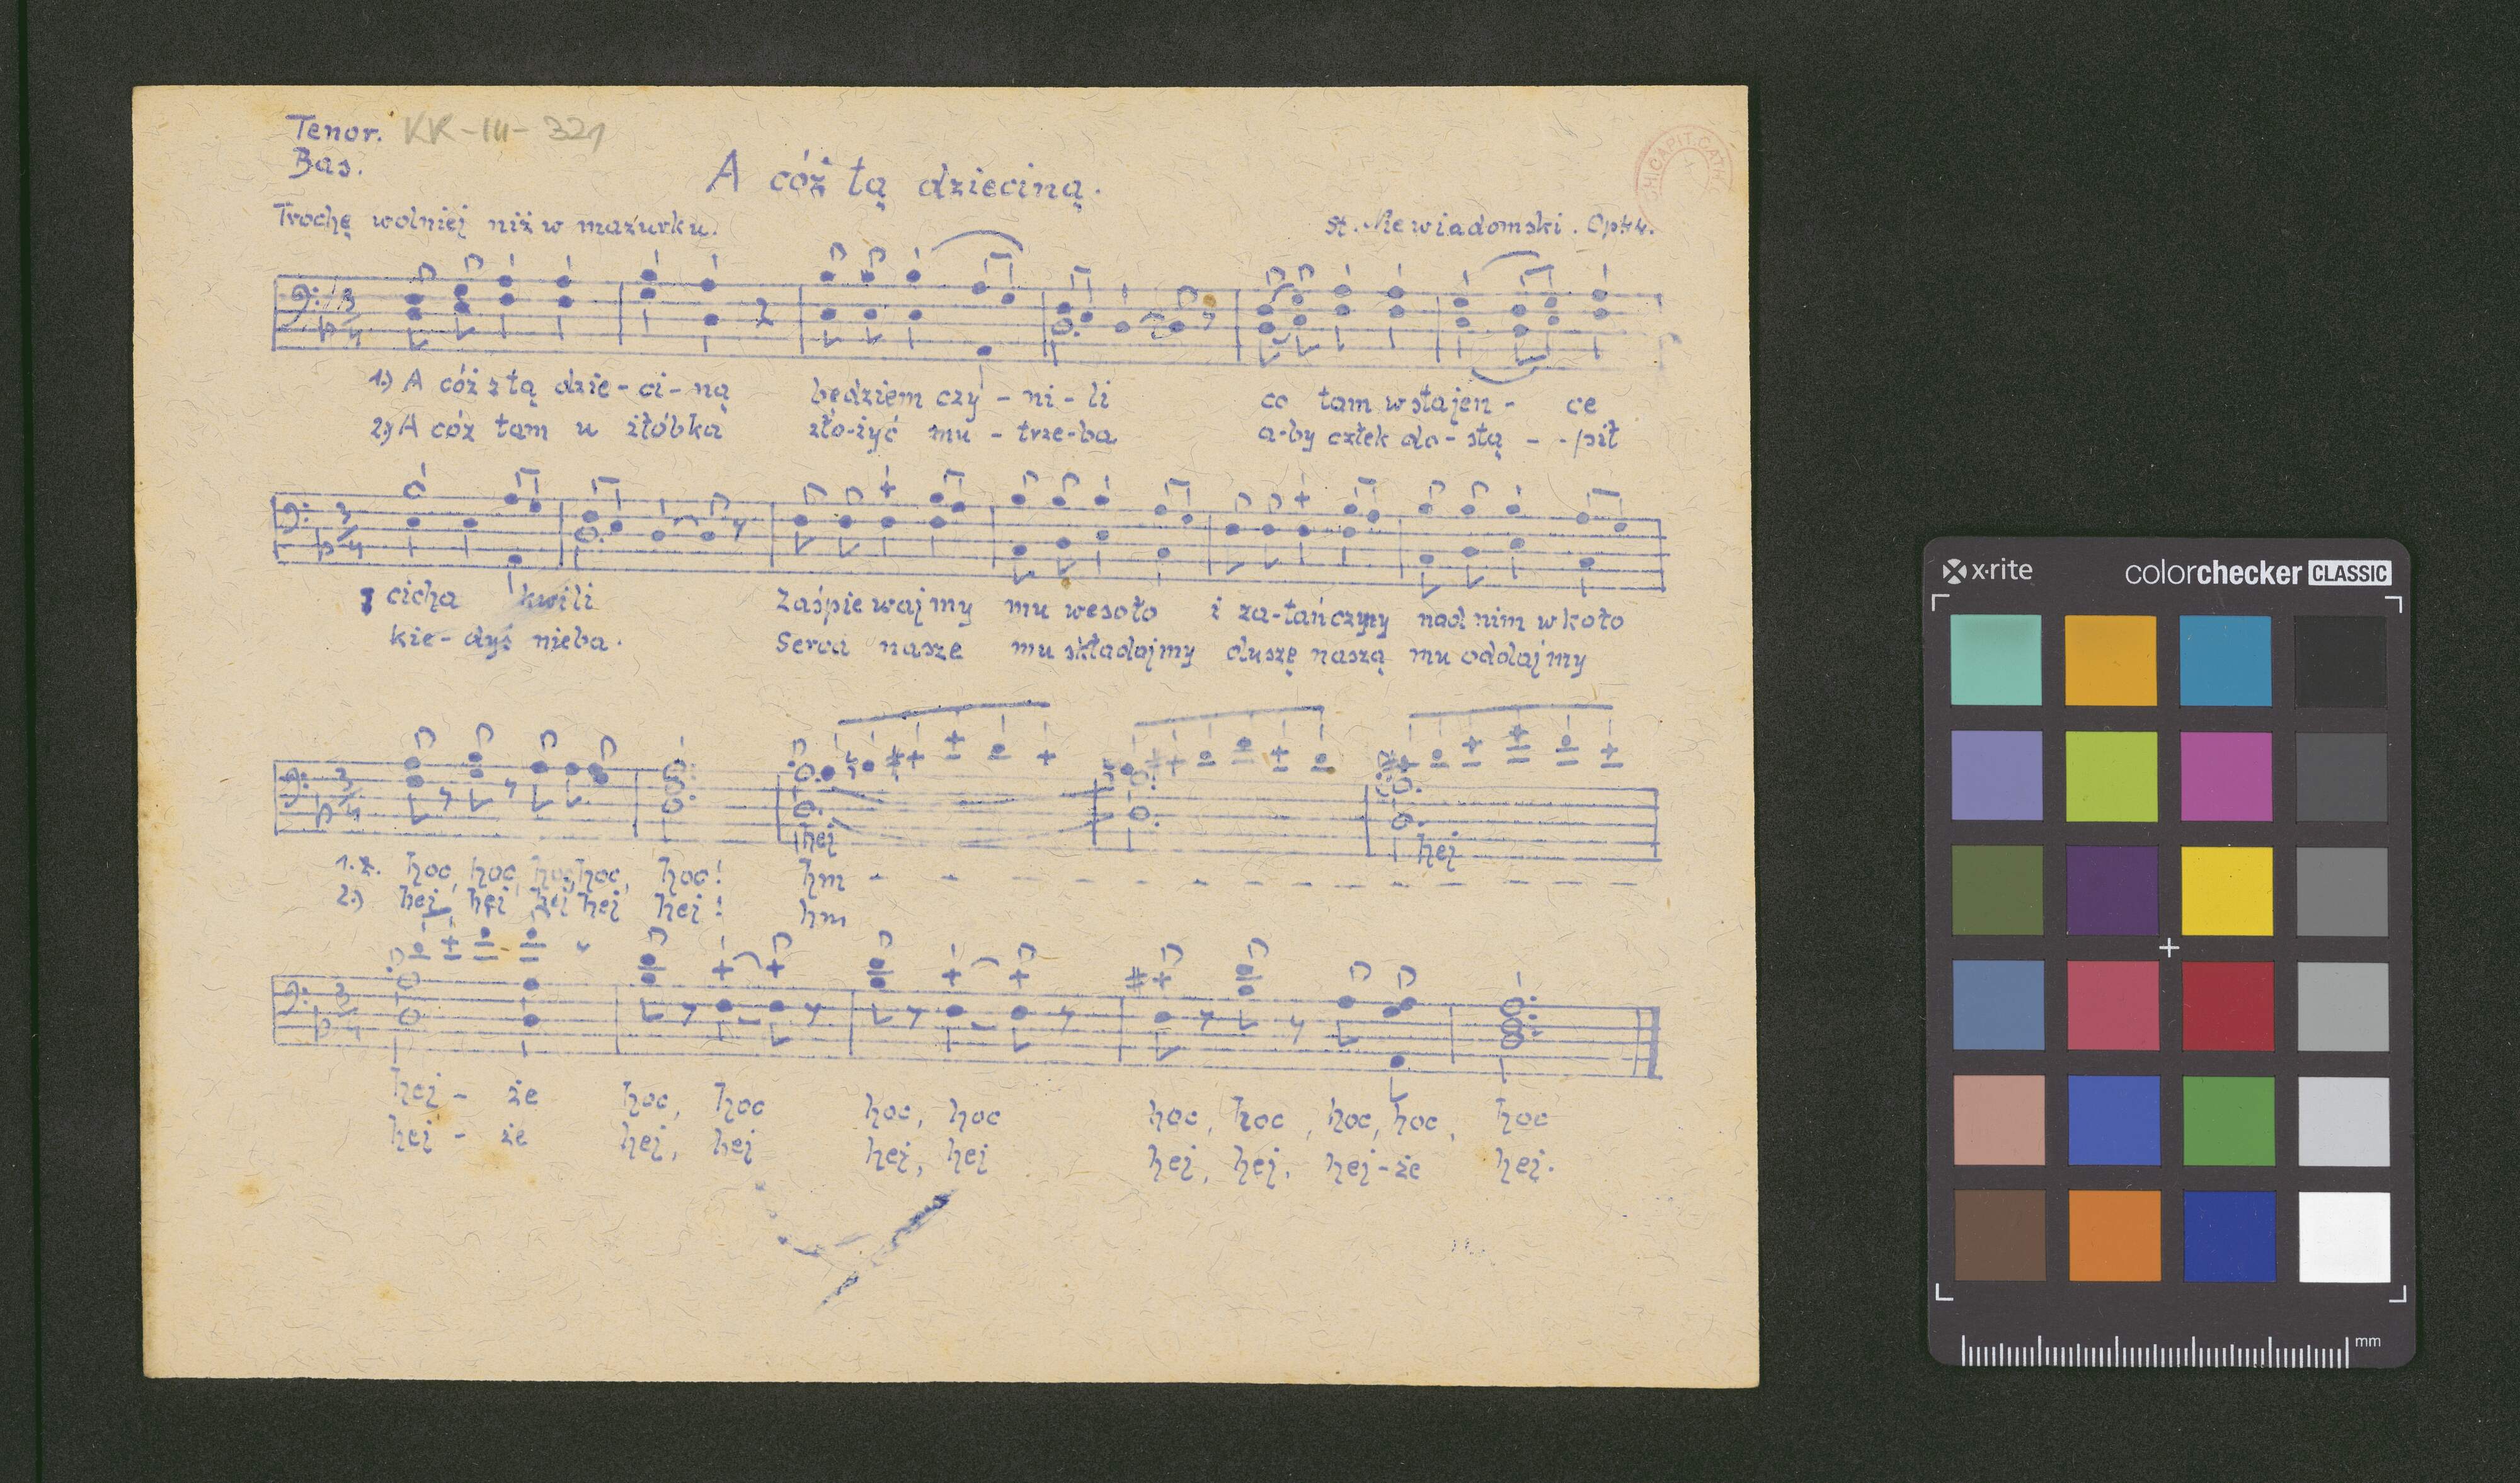 Tenor. KK-III-321
Bas.
A cóż tą dzieciną.
Trochę wolniej niż w mazurku.
St. Niewiadomski. Op 44.
1.) A cóż z tą dzie-ci-ną będziem czy-ni-li co tam w stajen- ce
2.) A cóż tam u żłóbka zło-żyć mu-trze-ba a-by człek do-stą - -pił
cicha kwili Zaśpiewajmy mu wesoło i za-tańczymy nad nim w koło
kie-dyś nieba. Serca nasze mu składajmy duszę naszą mu oddajmy
hej hej
1.2. hoc, hoc, hoc, hoc, hoc! hm - - - - - - - - - - -
2.) hej, hej hej hej hej! hm
hej - że hoc, hoc hoc, hoc hoc, hoc, hoc, hoc, hoc
hej - że hej, hej hej, hej hej, hej, hej-że hej.
x-rite colorchecker CLASSIC
mm